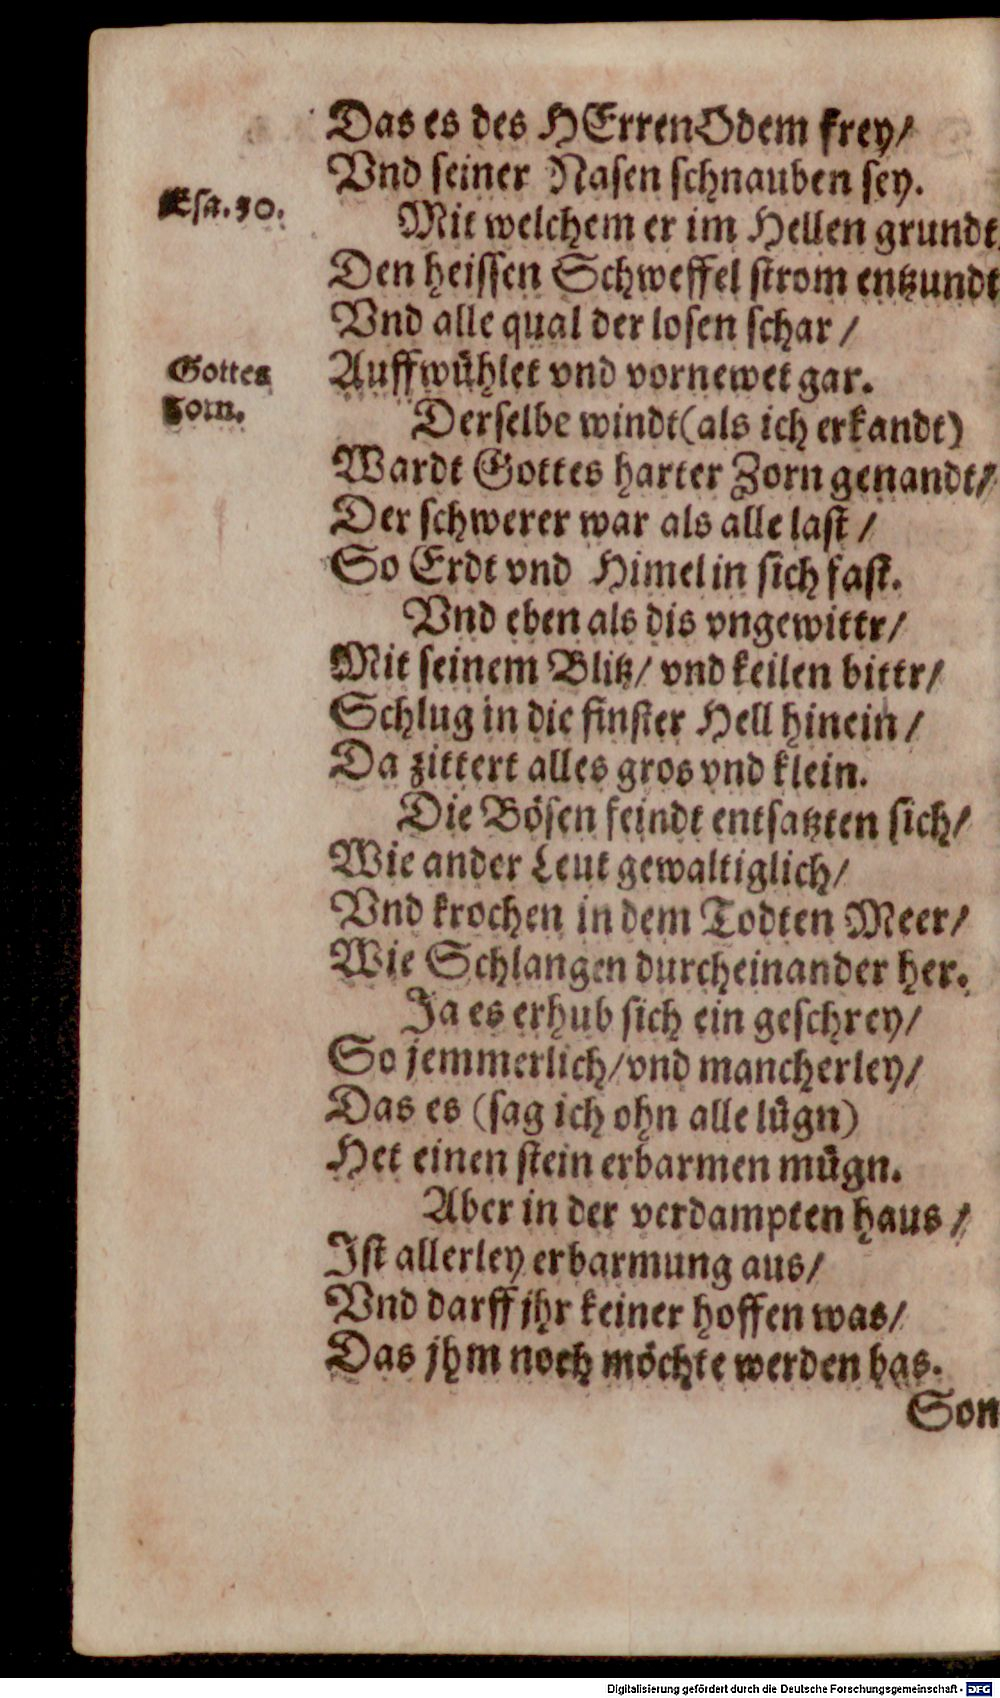 Das es des HErren Odem frey/
Vnd seiner Nasen schnauben sey.
Esa. 30.
Mit welchem er im Hellen grundt
Den heissen Schweffel strom entzundt
Vnd alle qual der losen schar /
Gottes
Zorn.
Auffwühlet vnd vornewet gar.
Derselbe windt (als ich erkandt)
Wardt Gottes harter Zorn genandt/
Der schwerer war als alle last /
So Erdt vnd Himel in sich fast.
Vnd eben als dis vngewittr/
Mit seinem Blitz/ vnd keilen bittr/
Schlug in die finster Hell hinein /
Da zittert alles gros vnd klein.
Die Bösen feindt entsatzten sich/
Wie ander Leut gewaltiglich/
Vnd krochen in dem Todten Meer/
Wie Schlangen durcheinander her.
Ja es erhub sich ein geschrey/
So jemmerlich/ vnd mancherley/
Das es (sag ich ohn alle lügn)
Het einen stein erbarmen mügn.
Aber in der verdampten haus /
Ist allerley erbarmung aus/
Vnd darff jhr keiner hoffen was/
Das jhm noch möchte werden bas.
Son
Digitalisierung gefördert durch die Deutsche Forschungsgemeinschaft - DFG